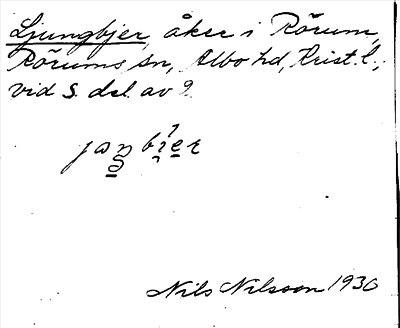 Ljungbjer, åker i Rörum,
Rörums sn, Albo hd, Krist. l.,
vid S. del. av 9.
Nils Nilsson 1930